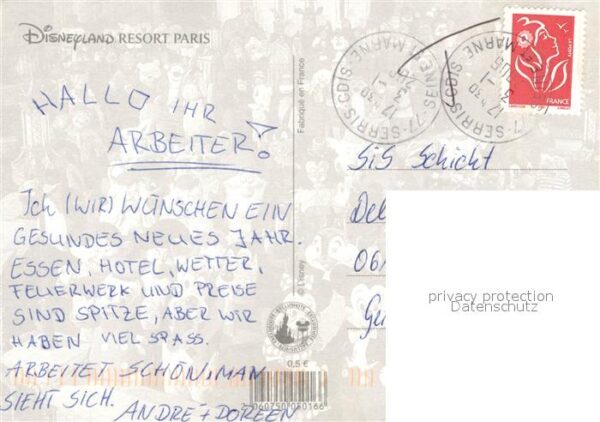 DISNEYLAND RESORT PARIS
HALLO IHR
ARBEITER!
ICH (WIR) WÜNSCHEN EIN
GESUNDES NEUES JAHR.
ESSEN, HOTEL, WETTER,
FEUERWERK UND PREISE
SIND SPITZE, ABER WIR
HABEN VIEL SPASS.
ARBEITET SCHÖN, MAN
SIEHT SICH. ANDRE + DOREEN
Fabriqué en France
© Disney
0,5 €
2 060750 050166
77-SERRIS-CDIS SEINE ET MARNE
77-SERRIS-CDIS MARNE
FRANCE
SiS Schicht
Del
06
privacy protection
Datenschutz